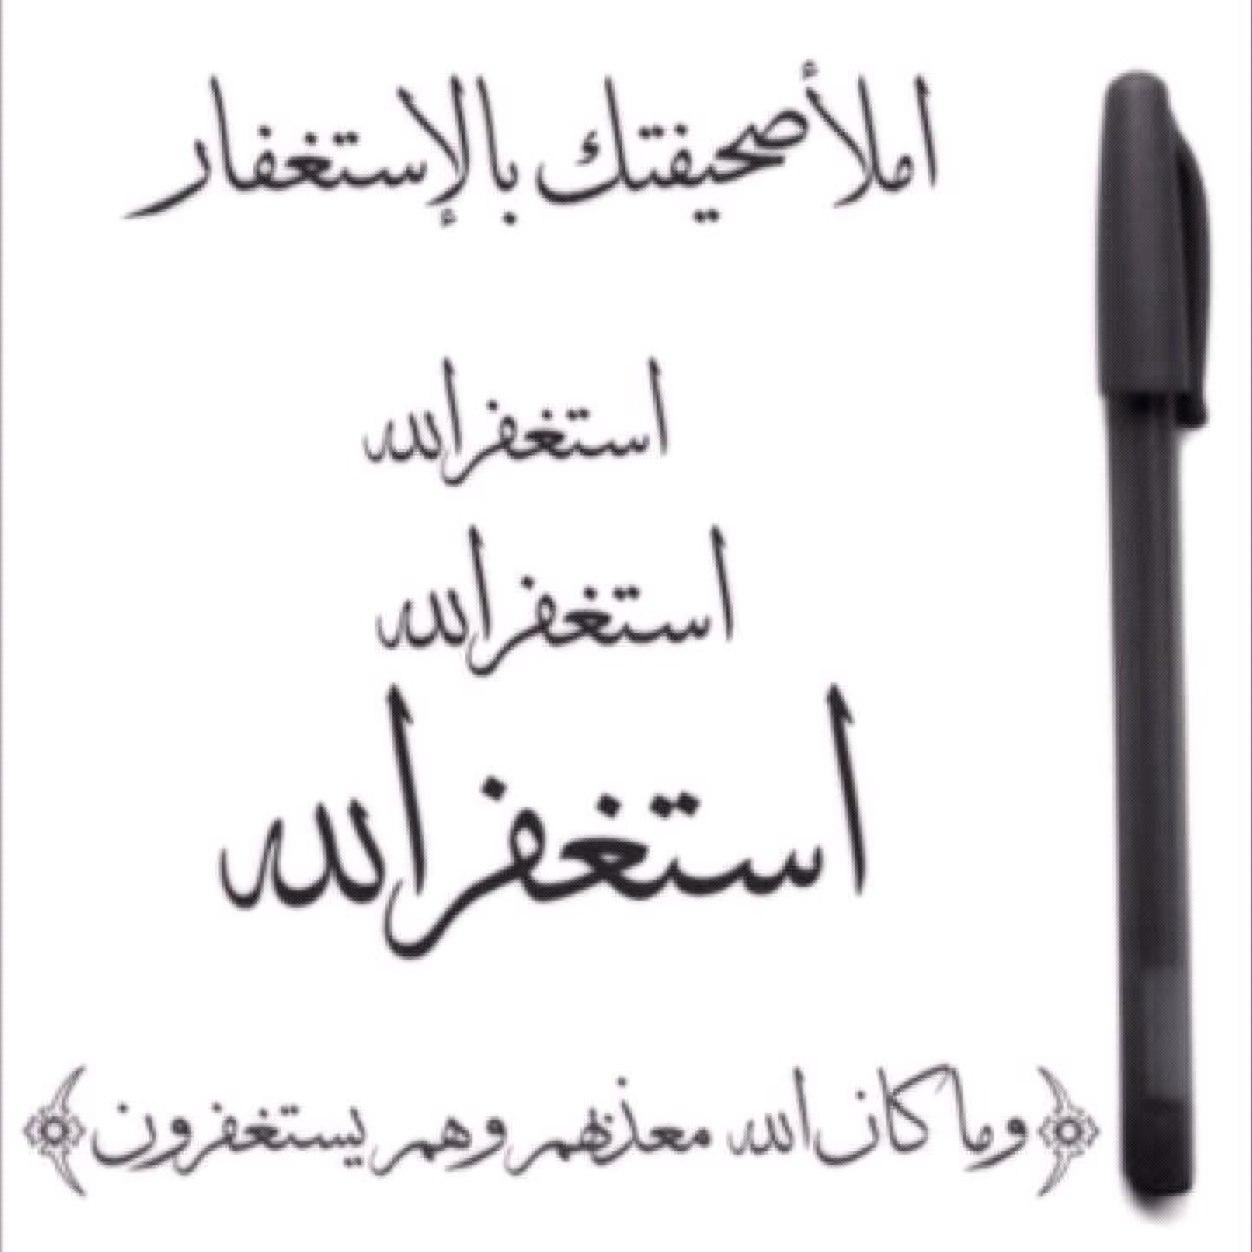 املأ صحيفتك بالإستغفار
استغفر الله
استغفر الله
استغفر الله
﴿وما كان الله معذبهم وهم يستغفرون﴾